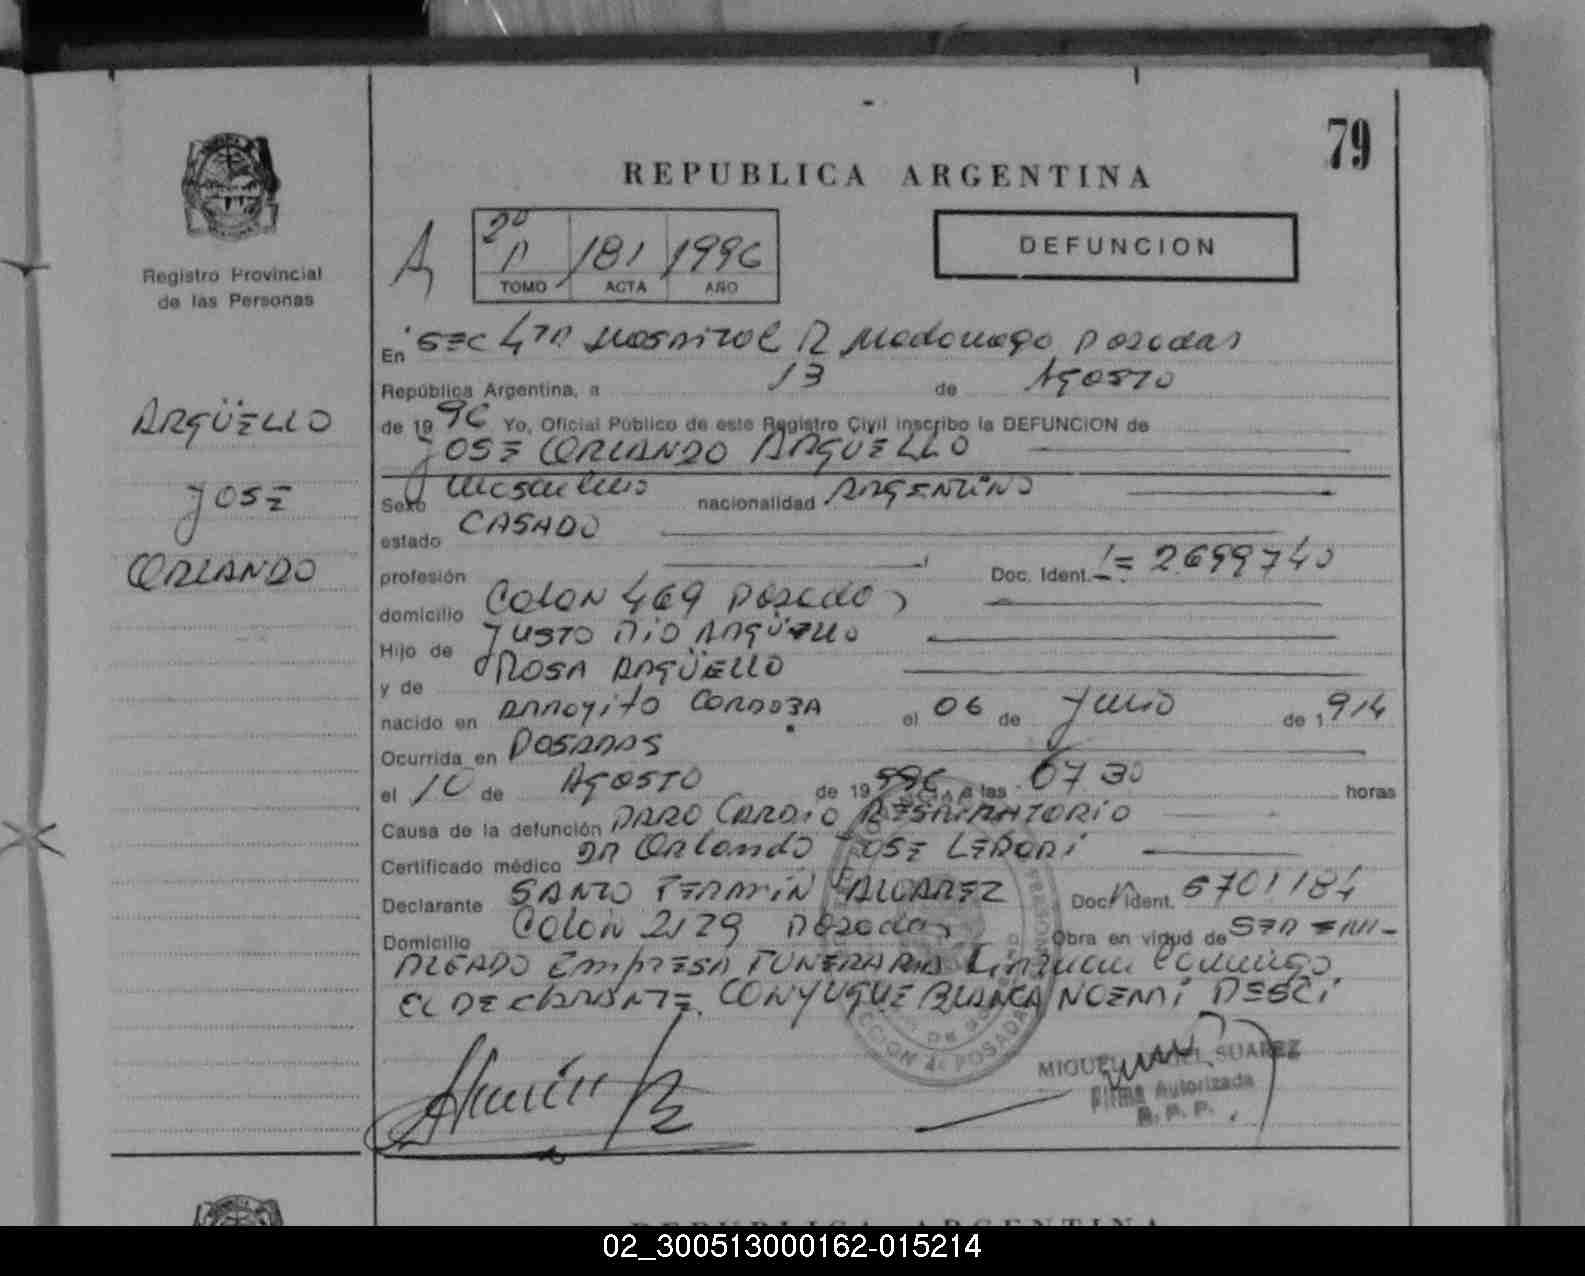 79
REPUBLICA ARGENTINA
Registro Provincial
de las Personas
A
2º P 181 1996
TOMO ACTA AÑO
DEFUNCION
En SEC 4ta Hospital R Madariaga Posadas
República Argentina, a 13 de Agosto
ARGÜELLO
de 19 96 Yo, Oficial Público de este Registro Civil inscribo la DEFUNCION de
JOSE ORLANDO ARGUELLO
JOSE
Sexo Masculino nacionalidad ARGENTINO
estado CASADO
ORLANDO
profesión Doc. Ident. 2699740
domicilio COLON 469 Posadas
Hijo de JUSTO PIO ARGÜELLO
y de ROSA ARGÜELLO
nacido en ARROYITO CORDOBA el 06 de Julio de 1914
Ocurrida en POSADAS
el 10 de AGOSTO de 19 996 a las 07 30 horas
Causa de la defunción PARO CARDIO RESPIRATORIO
Certificado médico DR Orlando JOSE
Declarante SANTO FERMIN ALVAREZ Doc. Ident. 5701184
Domicilio COLON 2129 Posadas Obra en virtud de SER EM-
PLEADO EMPRESA FUNERARIA
EL DECLARANTE. CONYUGUE BLANCA NOEMI
SECCION 4a POSADAS
MIGUEL SUAREZ
Firma Autorizada
R. P. P.
REPUBLICA ARGENTINA
02_300513000162-015214